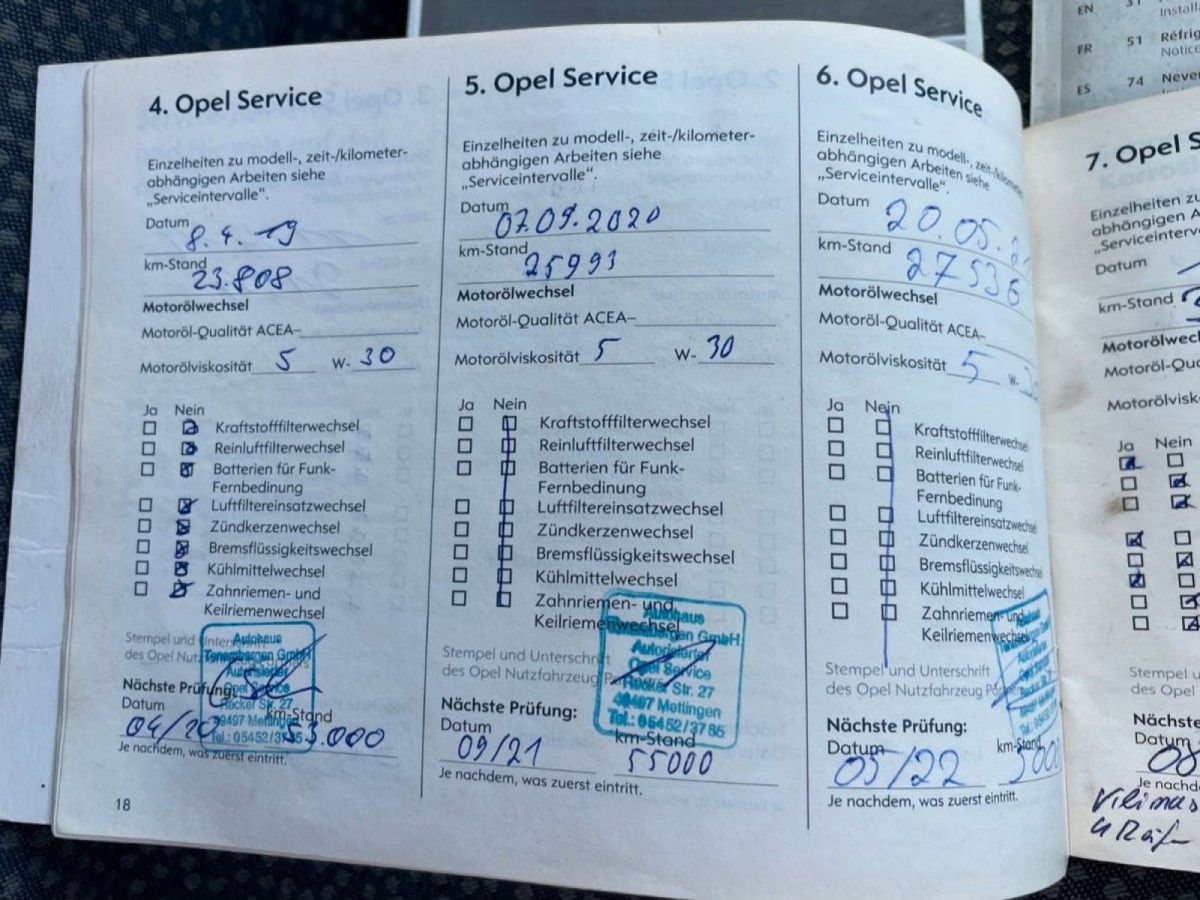 EN 31
Install
FR 51 Réfrig
Notice
ES 74 Never
4. Opel Service
Einzelheiten zu modell-, zeit-/kilometer-
abhängigen Arbeiten siehe
„Serviceintervalle“.
Datum 8.4.19
km-Stand 23.808
Motorölwechsel
Motoröl-Qualität ACEA–
Motorölviskosität 5 W- 30
Ja Nein
Kraftstofffilterwechsel
Reinluftfilterwechsel
Batterien für Funk-
Fernbedinung
Luftfiltereinsatzwechsel
Zündkerzenwechsel
Bremsflüssigkeitswechsel
Kühlmittelwechsel
Zahnriemen- und
Keilriemenwechsel
Stempel und Unterschrift
des Opel Nutz
Autohaus
GmbH
Opel Service
Recker Str. 27
49497 Mettingen
Tel.: 05452/3785
Nächste Prüfung:
Datum km-Stand
04/20 53.000
Je nachdem, was zuerst eintritt.
18
5. Opel Service
Einzelheiten zu modell-, zeit-/kilometer-
abhängigen Arbeiten siehe
„Serviceintervalle“.
Datum 07.09.2020
km-Stand 25993
Motorölwechsel
Motoröl-Qualität ACEA–
Motorölviskosität 5 W- 30
Ja Nein
Kraftstofffilterwechsel
Reinluftfilterwechsel
Batterien für Funk-
Fernbedinung
Luftfiltereinsatzwechsel
Zündkerzenwechsel
Bremsflüssigkeitswechsel
Kühlmittelwechsel
Zahnriemen- und
Keilriemenwechsel
Stempel und Unterschrift
des Opel Nutzfahrzeug
Autohaus
GmbH
Autorisierter
Opel Service
Recker Str. 27
49497 Mettingen
Tel.: 05452/3785
Nächste Prüfung:
Datum km-Stand
09/21 55000
Je nachdem, was zuerst eintritt.
6. Opel Service
Einzelheiten zu modell-, zeit-/kilome
abhängigen Arbeiten siehe
„Serviceintervalle“.
Datum 20.05.2
km-Stand 27536
Motorölwechsel
Motoröl-Qualität ACEA–
Motorölviskosität 5 W-
Ja Nein
Kraftstofffilterwechsel
Reinluftfilterwechsel
Batterien für Funk-
Fernbedinung
Luftfiltereinsatzwechsel
Zündkerzenwechsel
Bremsflüssigkeitswechsel
Kühlmittelwechsel
Zahnriemen- und
Keilriemenwechsel
Stempel und Unterschrift
des Opel Nutzfahrzeug
Nächste Prüfung:
Datum km-Stand
05/22
Je nachdem, was zuerst eintritt.
7. Opel S
Einzelheiten zu
abhängigen
„Serviceinterv
Datum
km-Stand
Motorölwec
Motoröl-Qua
Motorölvisk
Ja Nein
Stempel u
des Opel
Nächste
Datum
08
Je nachd